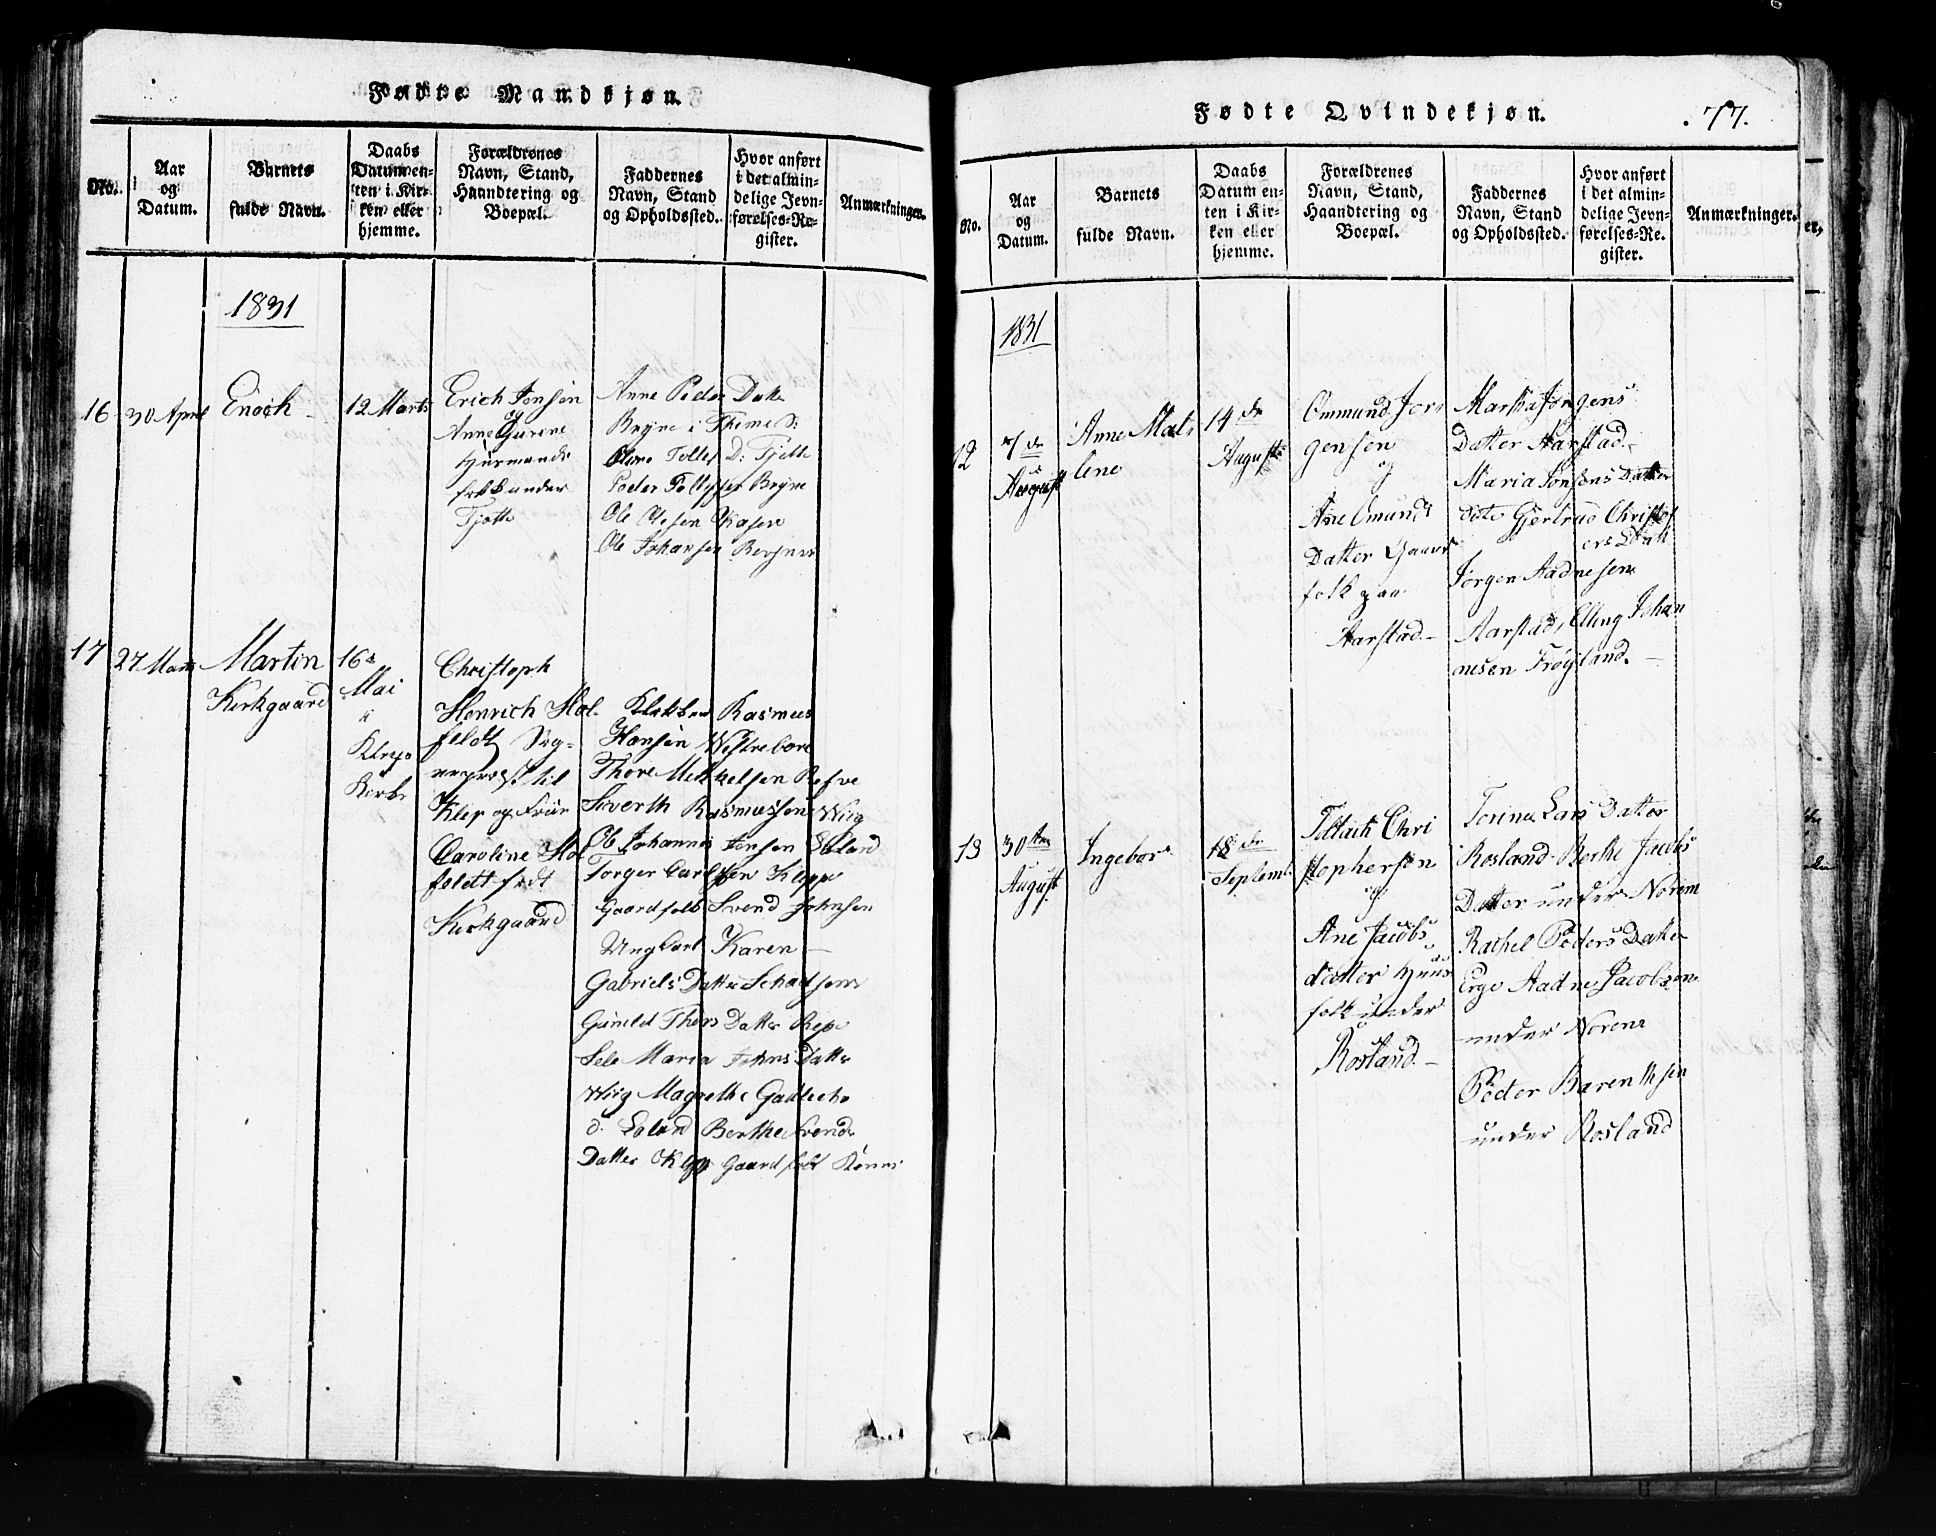 Fødte Mandkjøn.
No.
Aar
og
Datum.
Barnets
fulde Navn.
Daabs
Datum en-
ten i Kir-
ken eller
hjemme.
Forældrenes
Navn, Stand,
Haandtering og
Boepæl.
Faddernes
Navn, Stand
og Opholdssted.
Hvor anført
i det almin-
delige Jevn-
førelses-Re-
gister.
Anmærkninger.
1831
16
30 April
Enoch
12 Marts
Erich Jonsen
og
Anne Gurine
folk under
Tjøtte
Anne Peder Datter
Bryne i Thime
Tollef D: Tjøtte
Peder Bryne
Ole Olesen
Ole Johansen
17
27
Martin
Kirkgaard
16
Mai
i
Klep
Kirke
Christoph
Henrich Hol-
feldt Sog-
neprest til
Klep og Frue
Caroline Hol
feldt født
Kirkgaard
Rasmus
Hansen
Thore Mikkelsen Refve
Siverth Rasmussen Wiig
Ole Johannes Jonsen
Torger Carlsen Klep
Gaardfolk Svend Johnsen
Ung Carl Karen
Gabriels Datter
Gunild Thors Datter
Sele Maria Johns Datter
Wiig Magrethe
Berthe Svends
Datter Klep Gaardfolk
Fødte Qvindekjøn.
77.
No.
Aar
og
Datum.
Barnets
fulde Navn.
Daabs
Datum en-
ten i Kir-
ken eller
hjemme.
Forældrenes
Navn, Stand,
Haandtering og
Boepæl.
Faddernes
Navn, Stand
og Opholdssted.
Hvor anført
i det almin-
delige Jevn-
førelses-Re-
gister.
Anmærkninger.
1831
12
7de
August
Anne Mal
lene
14de
August
Ommund Jør
gensen
og
Ane Omunds
Datter Gaard
folk paa
Aarstad
Martha Jørgens
Datter Aarstad
Maria Jonsens Datter
dito Gjertrud Christof
ers Datt
Jørgen Aadnesen
Aarstad, Elling Johan
nesen Frøyland.
13
30te
August
Ingebor
18de
Septemb.
Chri
stophersen
og
Ane Jacobs
datter Huus
folk under
Rosland
Torine Lars Datter
Rosland Berthe Jacobs
Datter under Norem
Rachel Peders Datter
Erge Aadne Jacobsen
under Norem
Peder Barenthsen
under Rosland